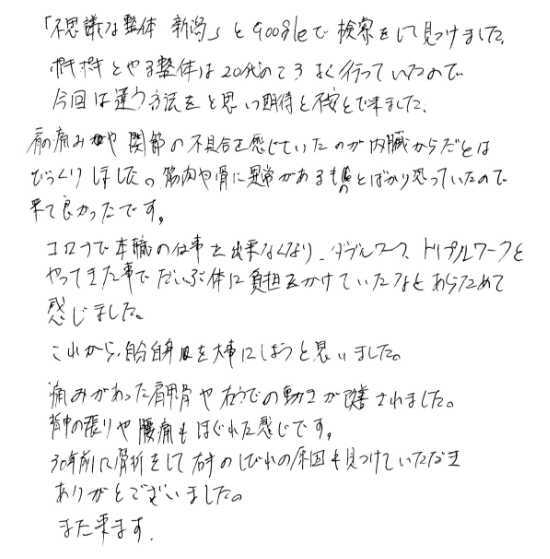 「不思議な整体 新潟」とGoogleで検索をして見つけました。
ボキボキとやる整体は20代のころよく行っていたので
今回は違う方法をと思い期待と不安とで来ました。
肩の痛みや関節の不具合を感じていたのが内臓からだとは
びっくりしました。筋肉や骨に異常があるものとばかり思っていたので
来て良かったです。
コロナで本職の仕事を出来なくなり、ダブルワーク、トリプルワークと
やってきた事でだいぶ体に負担をかけていたなとあらためて
感じました。
これから、自分自身を大事にしようと思いました。
痛みがあった肩甲骨や右うでの動きが改善されました。
背中の張りや腰痛もほぐれた感じです。
30年前に骨折をして右手のしびれの原因も見つけていただき
ありがとうございました。
また来ます.